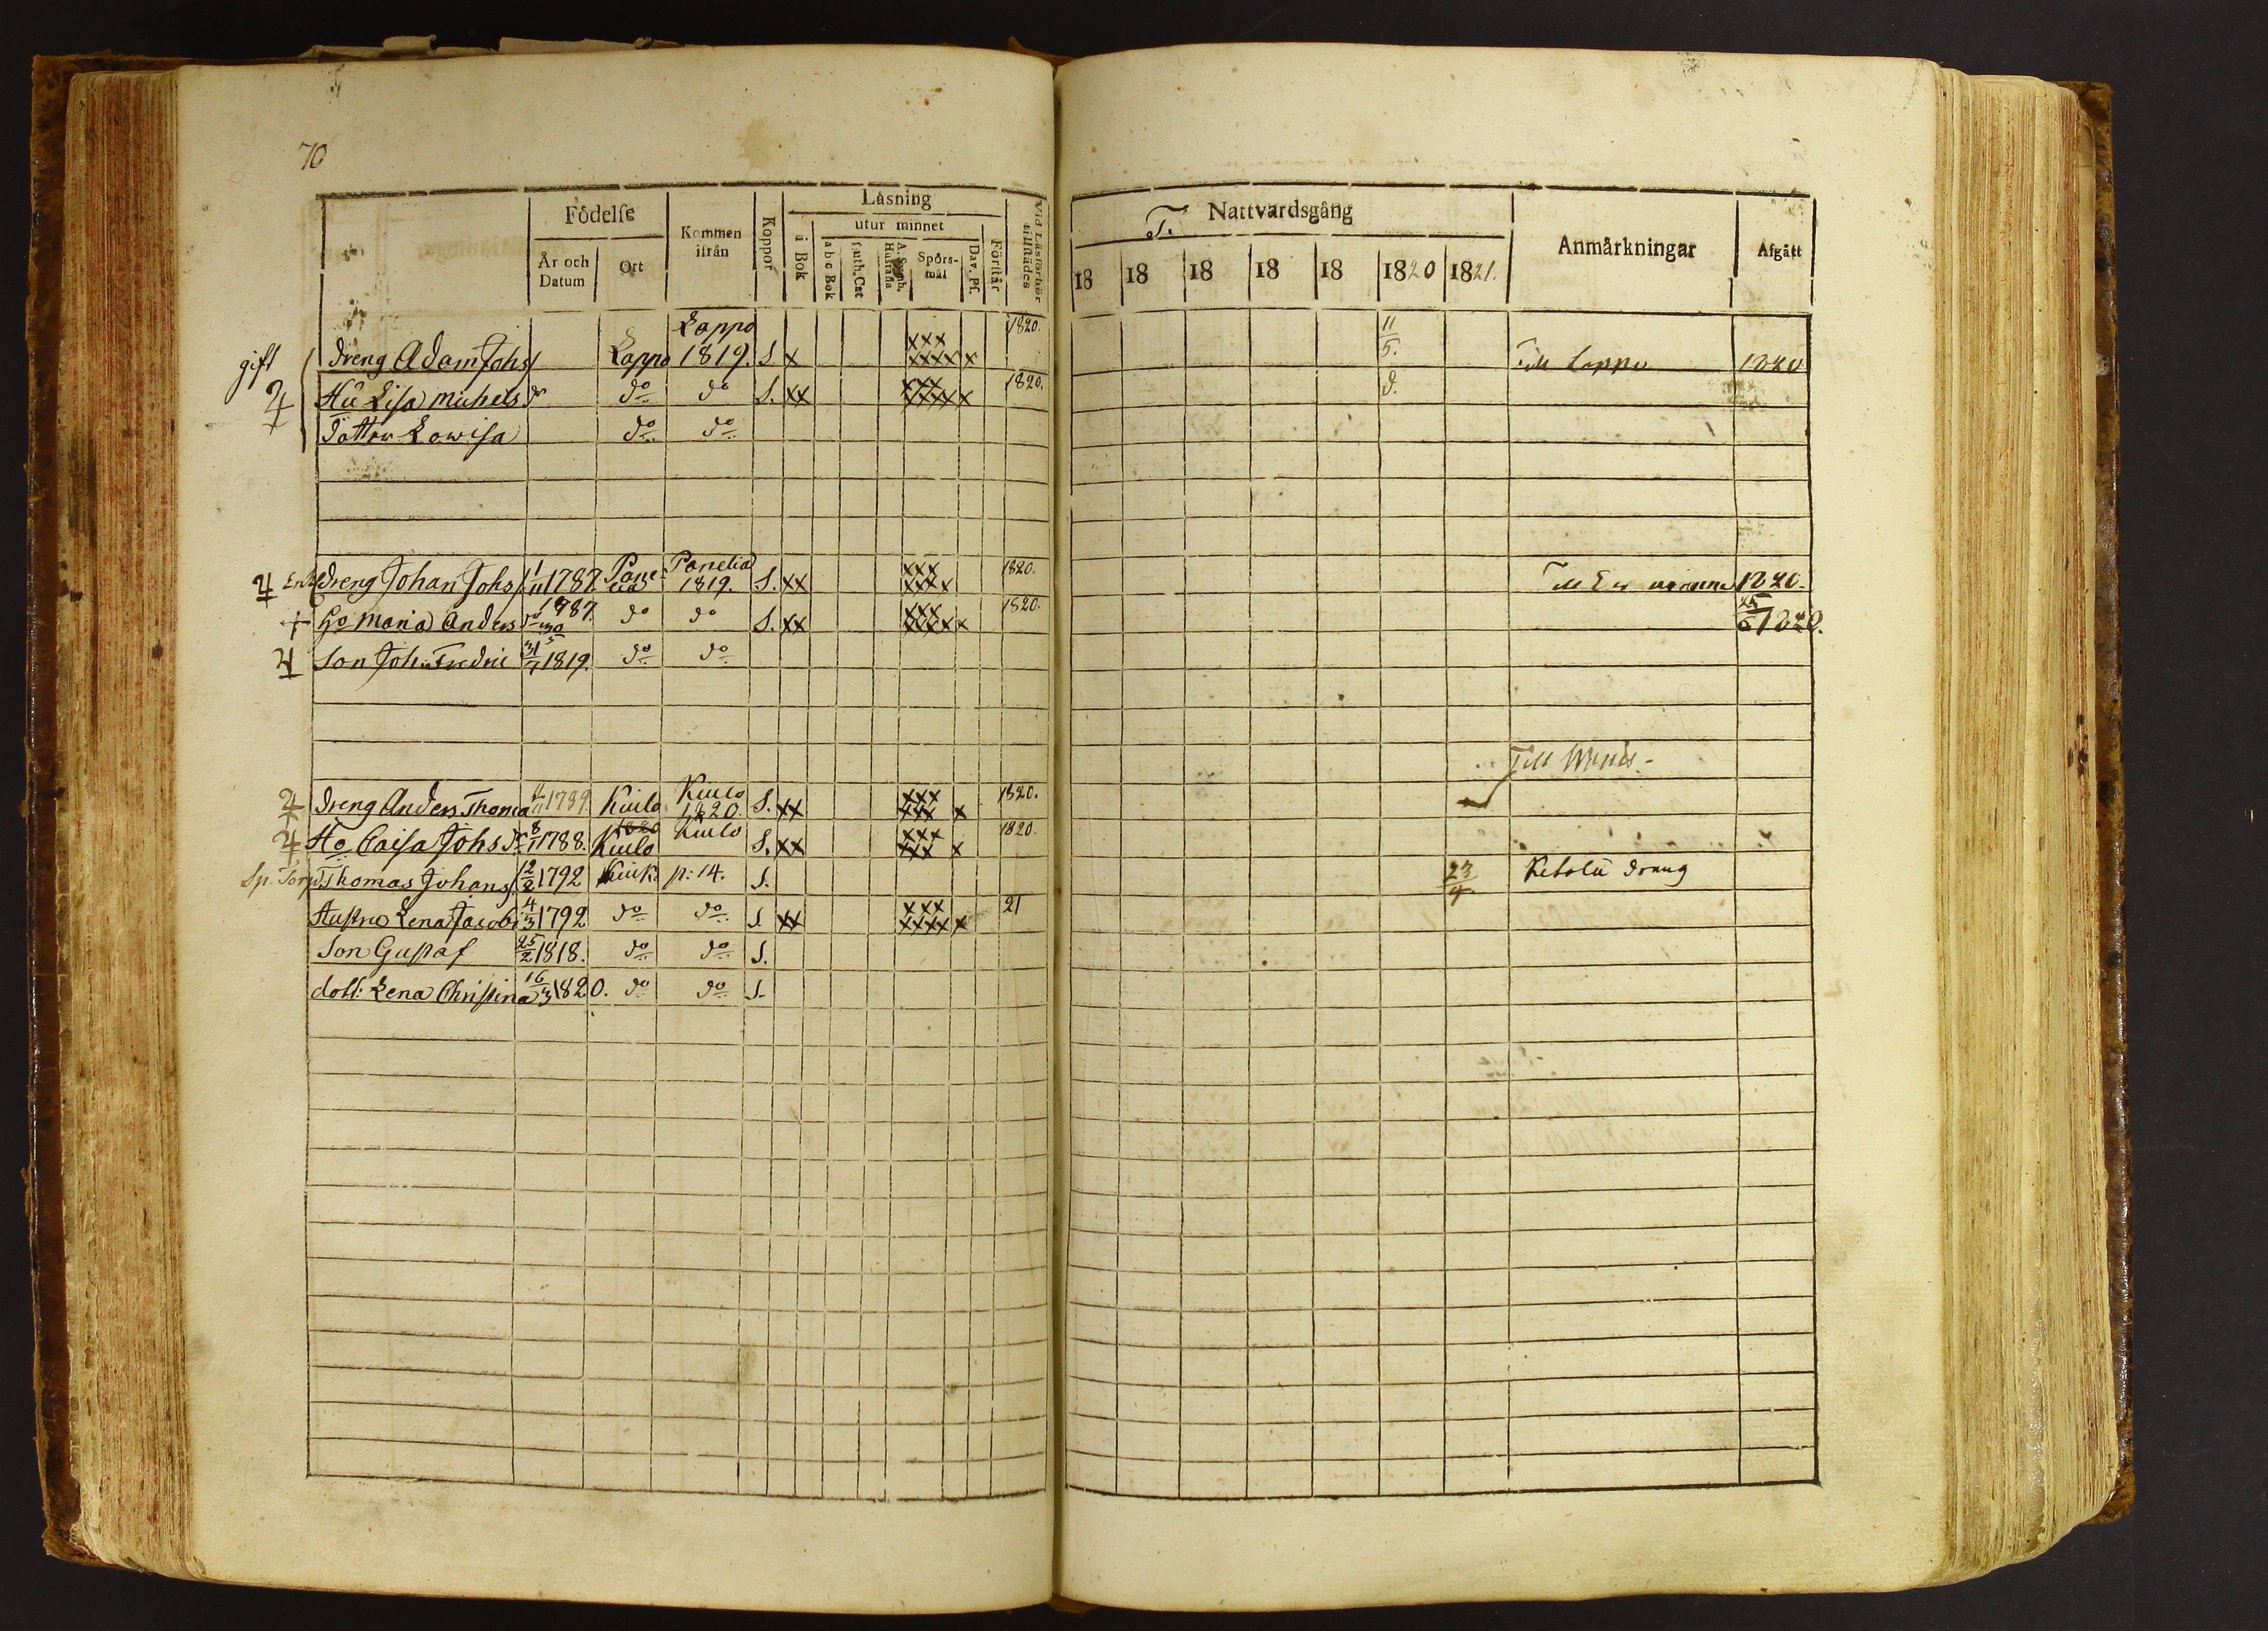 70
Födelse
År och Datum
Ort
Kommen ifrån
Koppor
Låsning
i Bok
utur minnet
a b c Bok
Luth. Cat
Spörs-mål
Dav. Ps.
Förstår
Vid Läsförhör tillstädes
T. Nattvardsgång
18 18 18 18 18 1820 1821.
Anmårkningar
Afgått
gift Dreng Adam Johs Lappo Lappo 1819. S x xxx xxxx x 1820. 11/5. Till Lappo 1820
Hu Lisa Michels dr do do S. xx xxx xxxx x 1820. d.
Dotter Lowisa do do
Enkl Dreng Johan Johs 1/11 1787. Pane-lia Panelia 1819. S. xx xxx xxxx 1820. Till 1820.
+ Ho Maria Anders dr 1787. 30/5 do do S. xx xxx xxxx x 1820. 25/6 1820.
Son Joh. Fredric 31/7 1819. do do
Till
Dreng Anders Thoma 1789. Kiulo Kiulo 1820. S. xx xxx xxx x 1820.
Ho Caisa Johs dr 8/11 1788. 1820 Kiulo Kiulo S. xx xxx xxx x 1820.
Sp. Torp. Thomas Johans 12/2 1792 Kiuk. p: 14. S. 23/4 Ketola dräng
Hustru Lena Jacobs 4/3 1792 do do S. xx xxx xxxx x 21
Son Gustaf 25/2 1818. do do S.
dott: Lena Christina 16/3 1820. do do S.